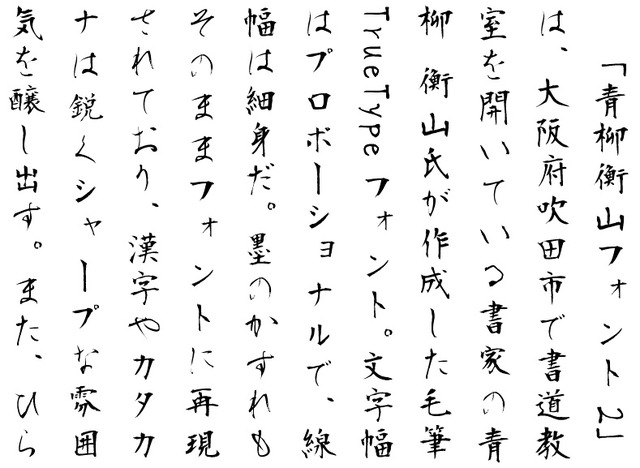 「青柳衡山フォント2」
は、大阪府吹田市で書道教
室を開いている書家の青
柳衡山氏が作成した毛筆
TrueTypeフォント。文字幅
はプロポーショナルで、線
幅は細身だ。墨のかすれも
そのままフォントに再現
されており、漢字やカタカ
ナは鋭くシャープな雰囲
気を醸し出す。また、ひら